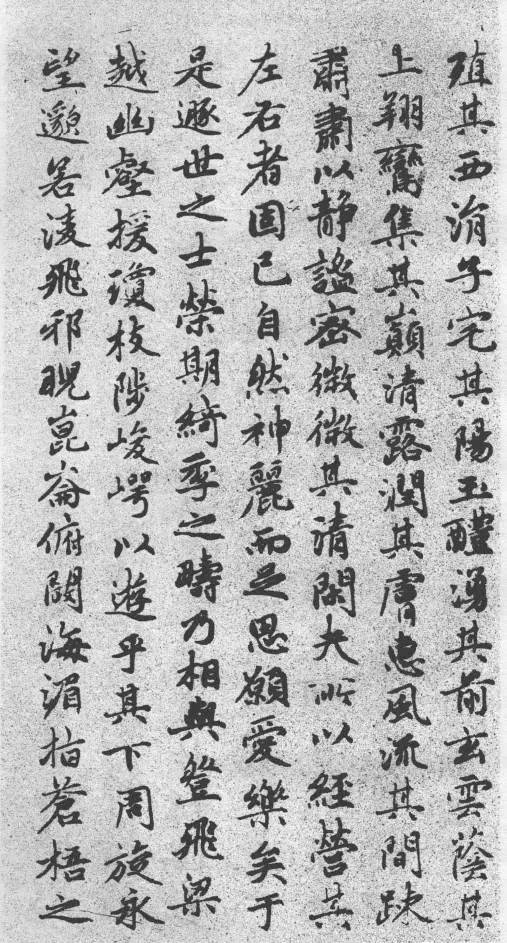 殖其西涓子宅其陽玉醴湧其前玄雲蔭其
上翔鸞集其巔清露潤其膚惠風流其間竦
肅肅以静謐密微微其清閑夫所以經營其
左右者固已自然神麗而足思願愛樂矣于
是遯世之士榮期綺季之疇乃相與登飛梁
越幽壑援瓊枝陟峻崿以遊乎其下周旋永
望邈若淩飛邪睨崑崙俯闞海湄指蒼梧之